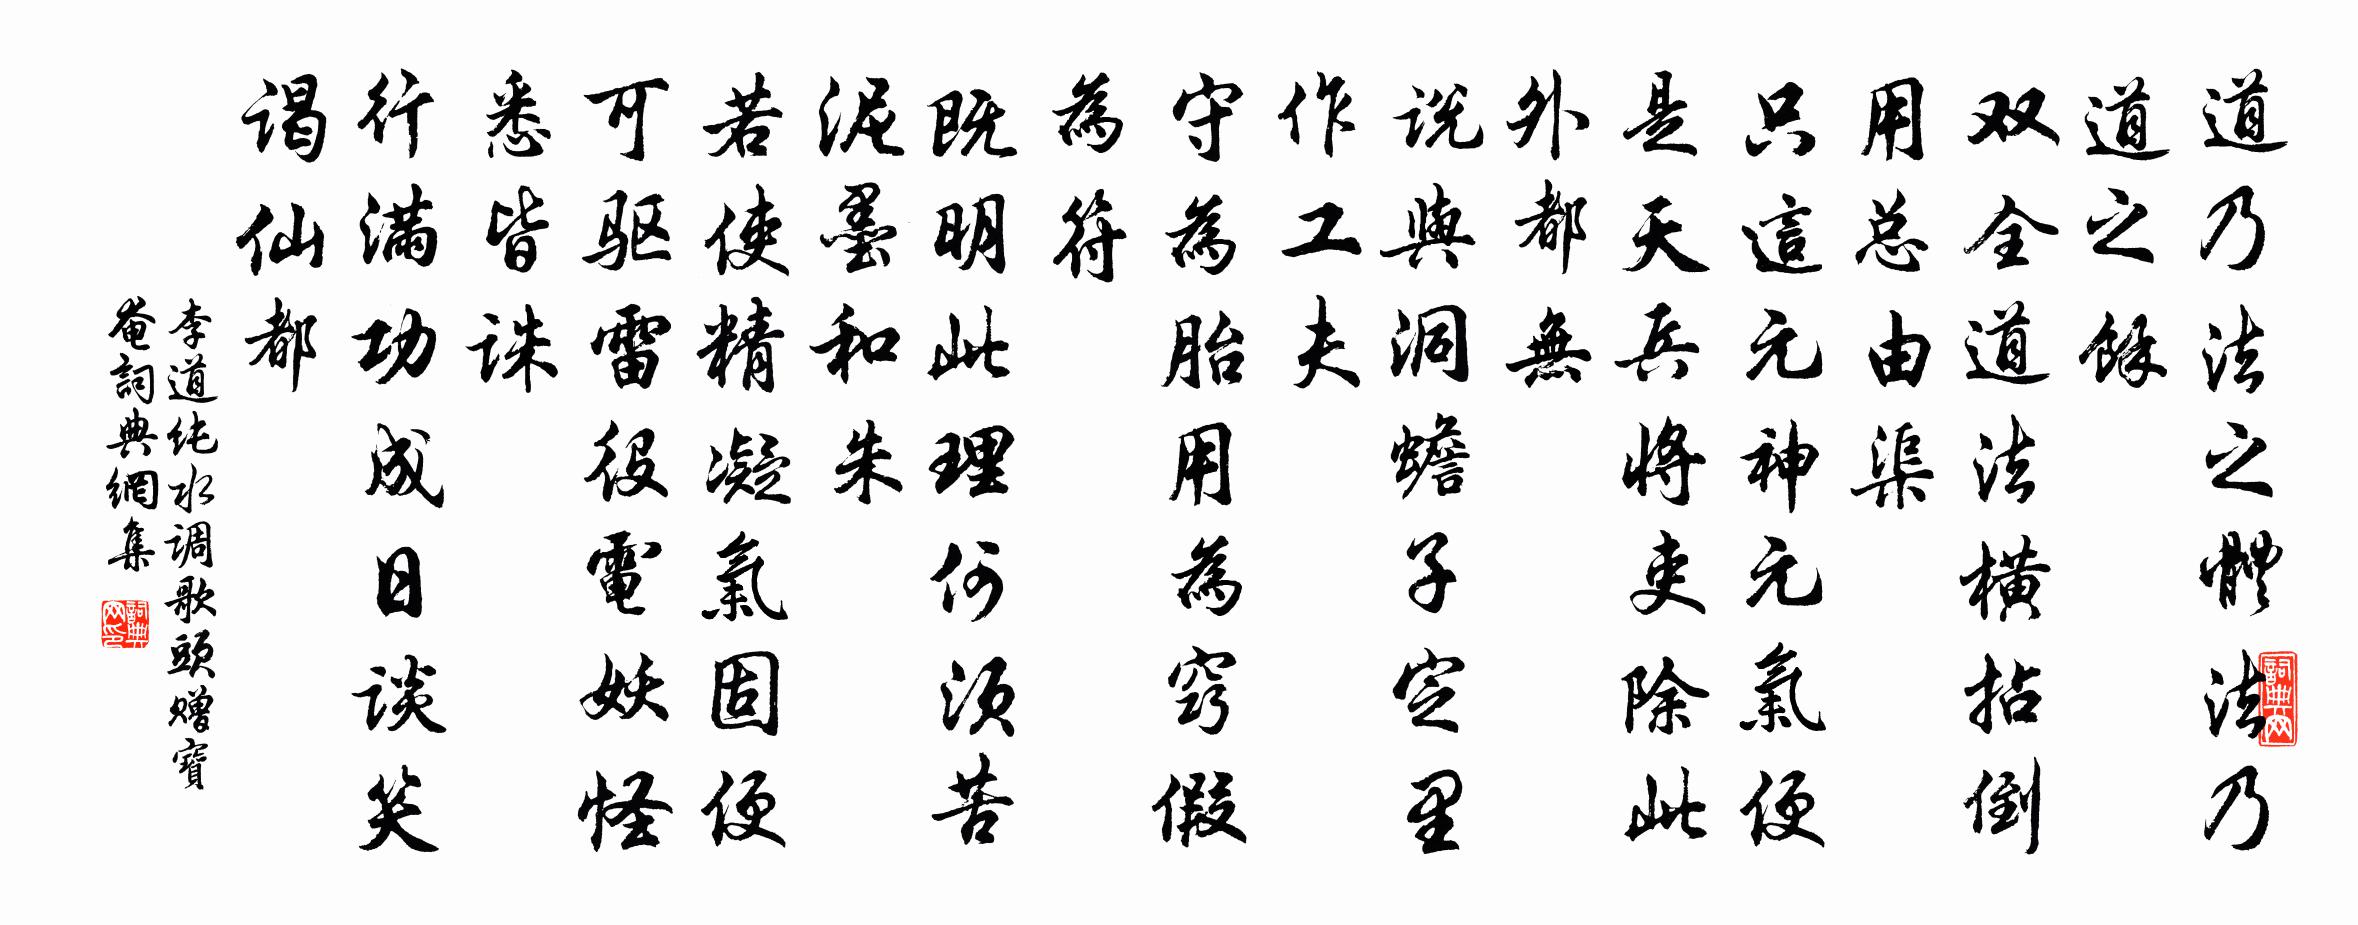 道乃法之體法乃
道之餘
双全道法横拈倒
用总由渠
只這元神元氣便
是天兵將吏除此
外都無
説與洞蟾子定里
作工夫
守為胎用為窍假
為符
既明此理何须苦
泥墨和朱
若使精凝氣固便
可驱雷役電妖怪
悉皆诛
行满功成日谈笑
谒仙都
李道纯水调歌頭赠寶
菴詞典網集
詞典网
詞典网印